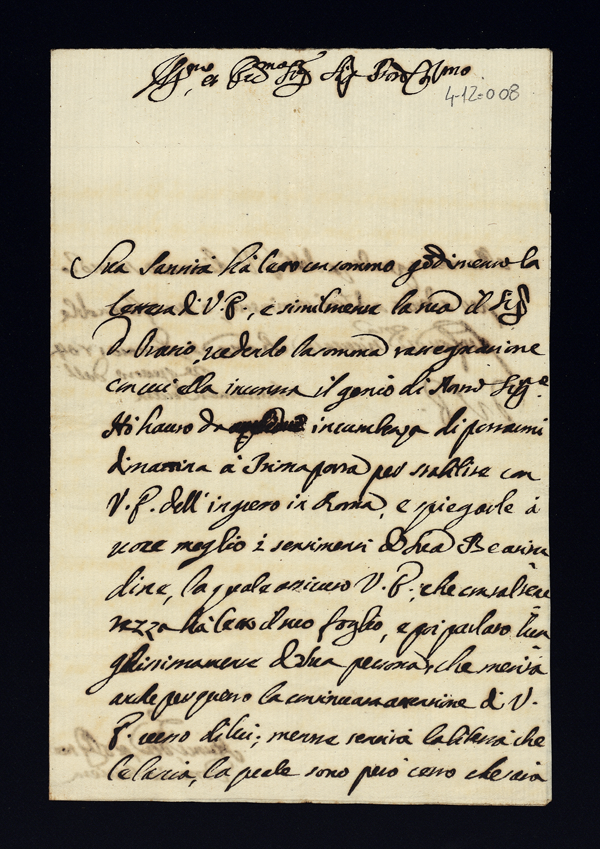 Ill.mo et Ecc.mo Sig.
4-12=008
Sua Santità hà letto con sommo godimento la
lettera di V. P., e similmente la sua il Sig.
D. Orazio, vedendo la somma rassegnazione
con cui ella incontra il genio di
Hò hauto da incumbenza di portarmi
dimattina à Prima porta per stabilire con
V. P. dell'ingresso in Roma, e spiegarle à
voce meglio i sentimenti di Sua Beatitu
dine, la quale assicuro V. P., che con tene
rezza hà letto il suo foglio, e poi parlato lun
ghissimamente di Sua persona, che merità
anche per questo la continuata attenzione di V.
P. verso di lui; mentre sentirà la libertà che
le lascia, la quale sono però certo che sarà